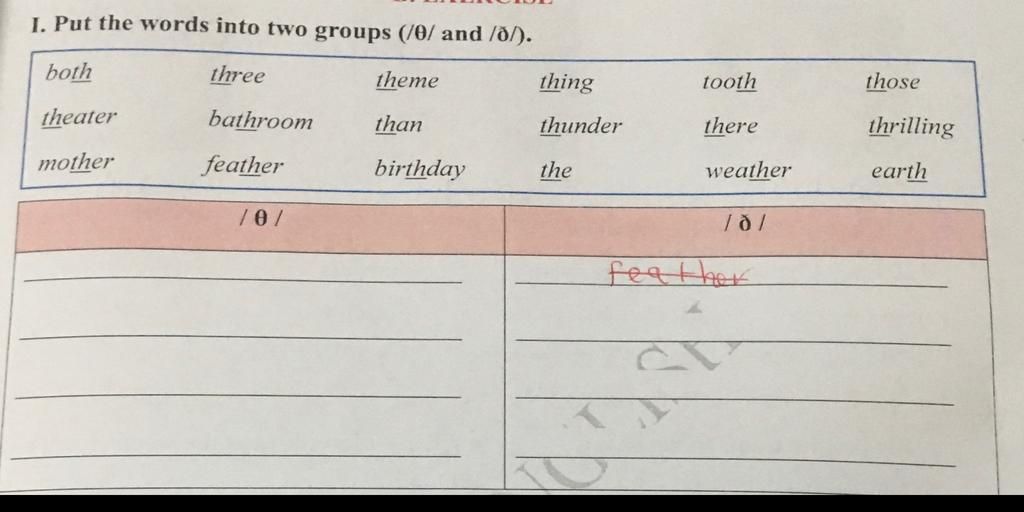 B. EXERCISE
I. Put the words into two groups (/θ/ and /ð/).
both three theme thing tooth those
theater bathroom than thunder there thrilling
mother feather birthday the weather earth
/ θ / / ð /
feather